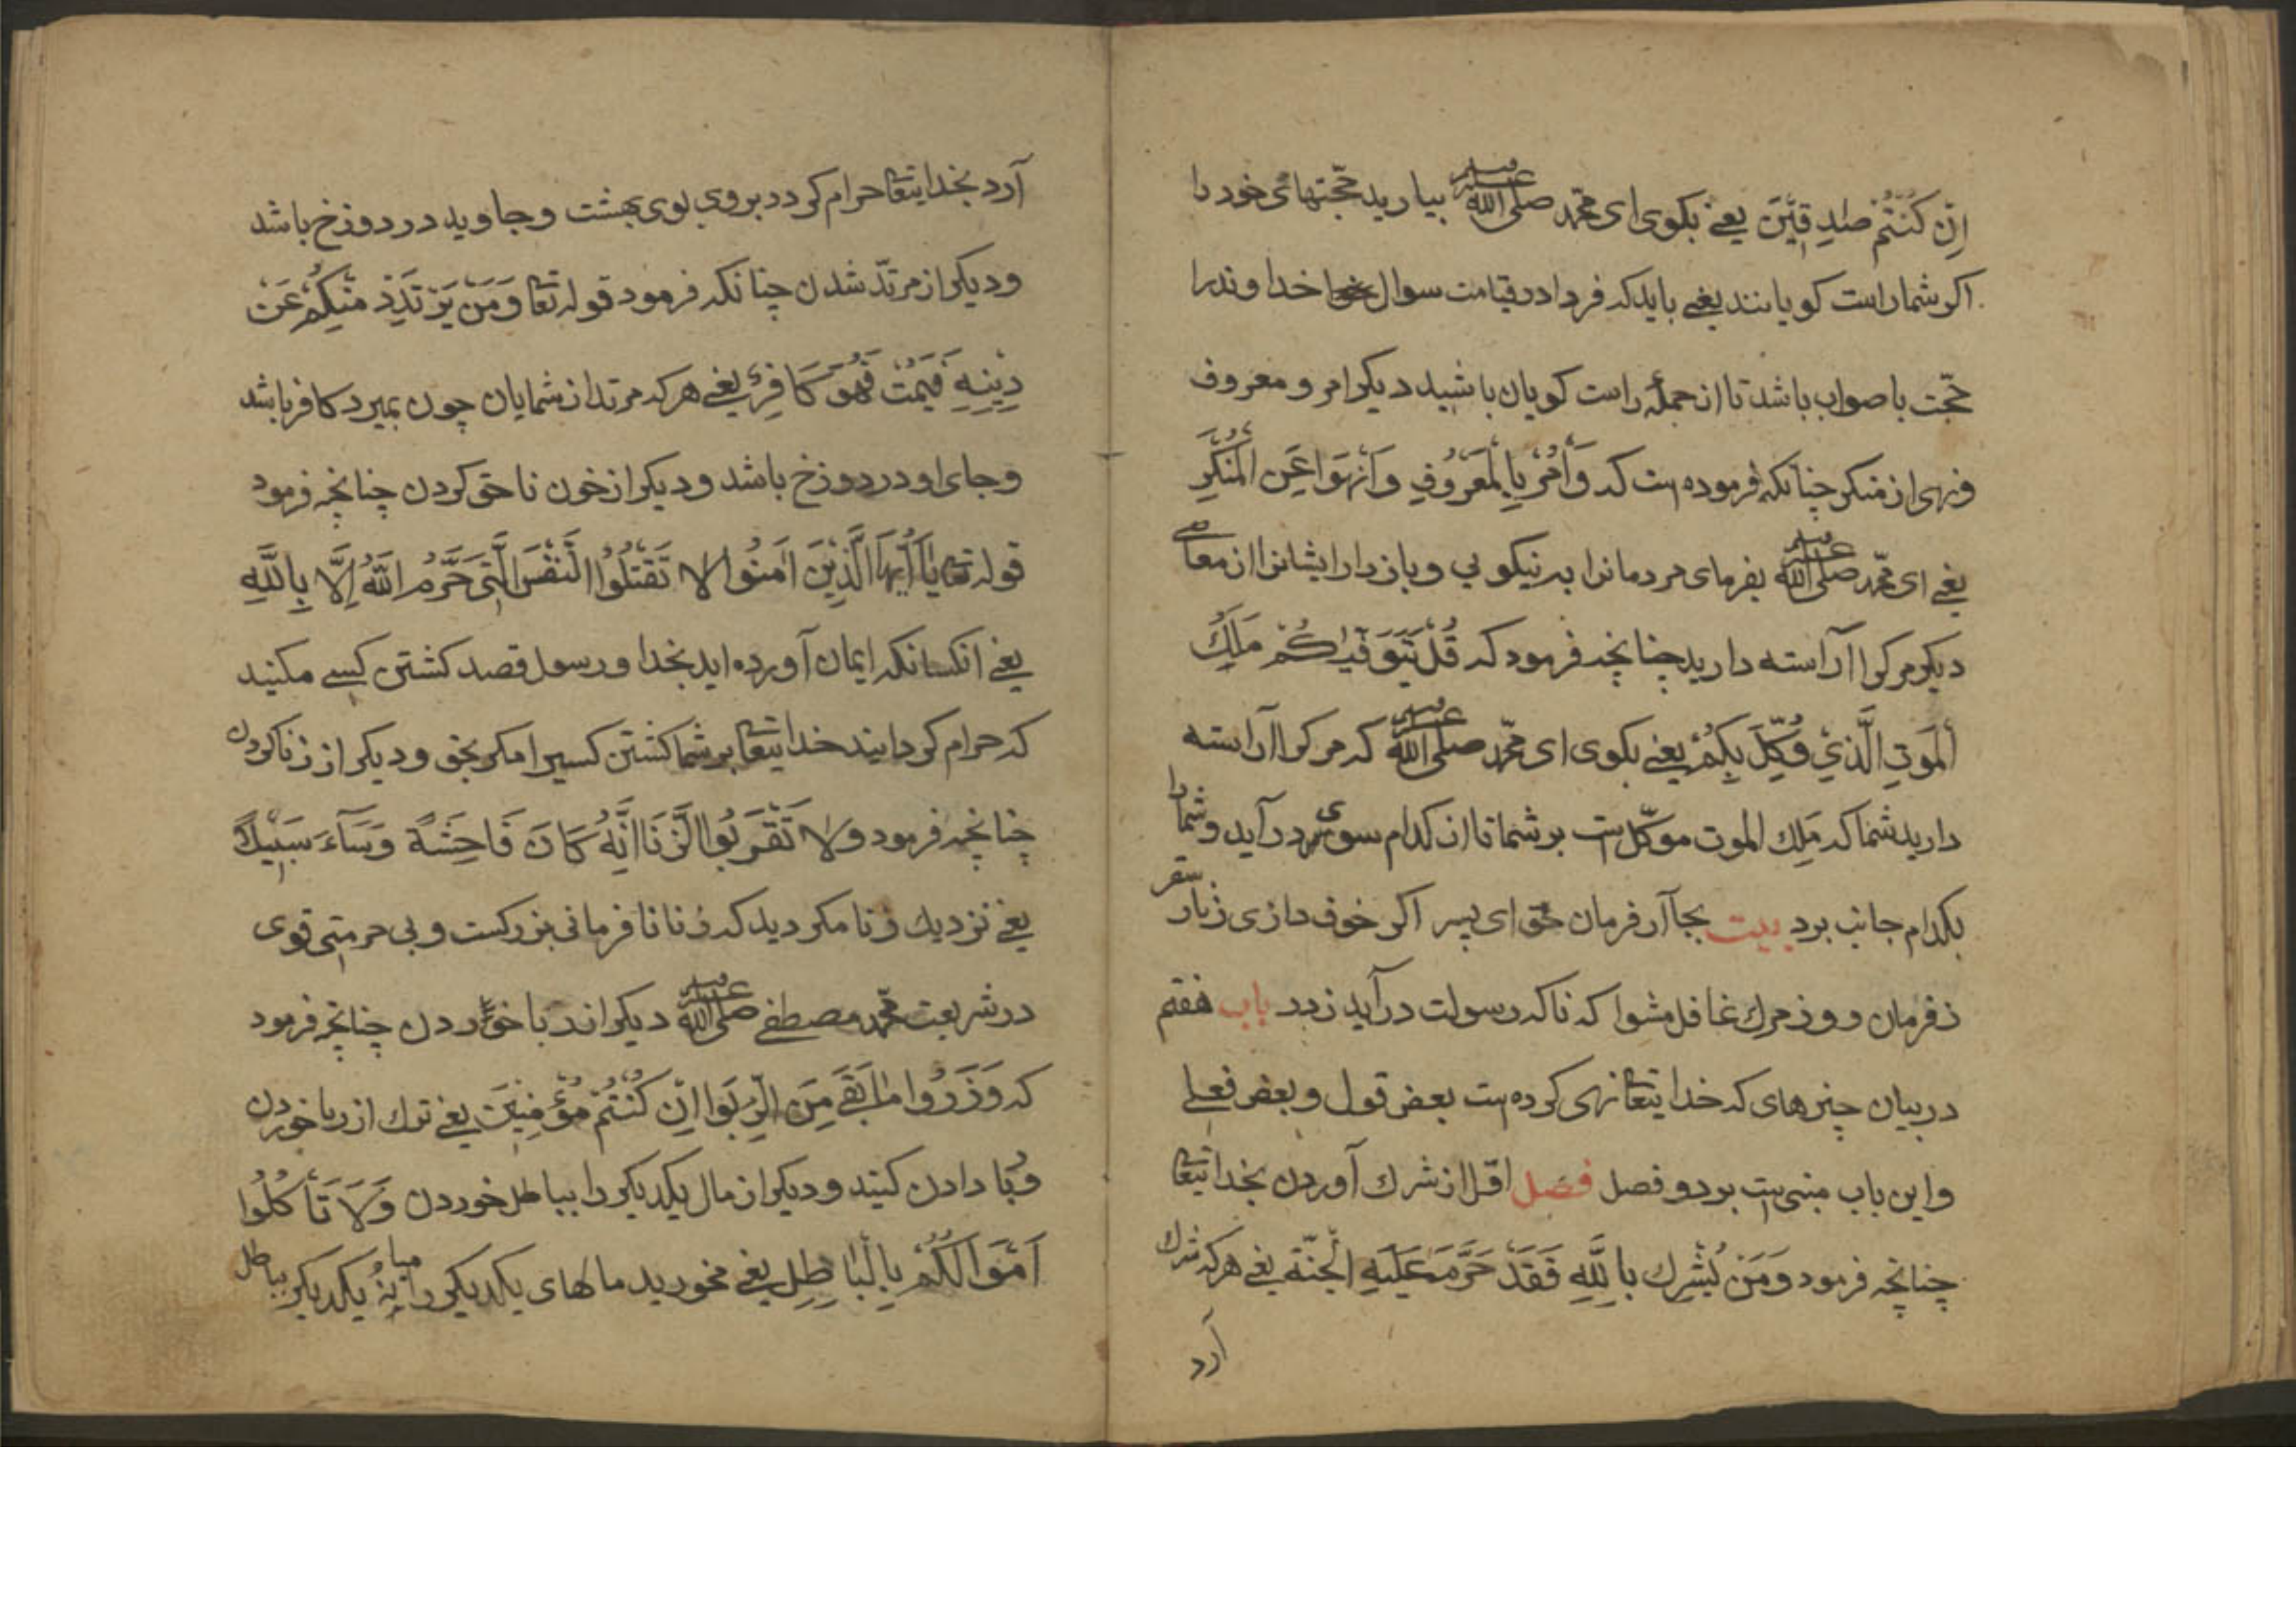 اِنْ كُنْتُمْ صٰدِقِيْنَ يعنے بكوى اى محمّد صلى الله عليه وسلم بياريد حجّتهائى خود را
اكر شما راست كويانند يعنے بايد كه فردا در قيامت سوال خداوندرا
حجّت با صواب باشد تا از جملهٔ راست كويان باشيد ديكر امر و معروف
ونهى از منكر چنانكه فرموده است كه وَأْمُرْ بِالْمَعْرُوفِ وَانْهَوَا عَنِ الْمُنْكَرِ
يعنے اى محمّد صلى الله عليه وسلم بفرماى مردمانرا به نيكويى وباز دار ايشانرا از معاصے
ديكر مركرا آراسته داريد چنانچه فرمود كه قُلْ يَتَوَفّٰيكُمْ مَلِكُ
الْمَوْتِ الَّذِيْ وُكِّلَ بِكُمْ يعنے بكوى اى محمّد صلى الله عليه وسلم كه مركرا آراسته
داريد شما كه مَلِك الموت موكّل است بر شما تا از كدام سوى در آيد وشما را
بكدام جانب برد بيت بجا آر فرمان حق اى پسر اكر خوف دارى ز نار سقر
ز فرمان و وز مرك غافل مشوا كه ناكه رسولت در آيد ز در باب هفتم
در بيان چيزهاى كه خدايتعا نهى كرده است بعض قول و بعض فعلے
واين باب مبنى است بر دو فصل فصل اوّل از شرك آوردن بخدايتعا
چنانچه فرمود وَمَنْ يُشْرِك بِاللّٰهِ فَقَدْ حَرَّمَ عَلَيْهِ الْجَنَّة يعنے هركه شرك
آرد
آرد بخدايتعا حرام كردد بروى بوى بهشت وجاويد در دوزخ باشد
وديكر از مرتدّ شدن چنانكه فرمود قوله تعا وَمَنْ يَرْتَدِدْ مِنْكُمْ عَنْ
دِيْنِهٖ فَيَمُتْ فَهُوَ كَافِرٌ يعنے هركه مرتد از شمايان چون بميرد كافر باشد
وجاى او در دوزخ باشد وديكر از خون ناحق كردن چنانچه فرمود
قوله تعا يٰاَيُّهَا الَّذِيْنَ اٰمَنُوا لا تَقْتُلُوْا النَّفْسَ الَّتِىْ حَرَّمَ اللّٰهُ اِلَّا بِاللّٰهِ
يعنے انكسانكه ايمان آورده ايد بخدا ورسول قصد كشتن كسے مكنيد
كه حرام كردايند خدايتعا بر شما كشتن كسيرا مكر بحق وديكر از زنا كردن
چنانچه فرمود ولا تَقْرَبُوا الزِّنَا اِنَّهُ كَانَ فَاحِشَةً وَسَآءَ سَبِيْلًا
يعنے نزديك زنا مكرديد كه زنا نا فرمانى بزركست وبى حرمتى قوى
در شريعت محمّد مصطفے صلى الله عليه وسلم ديكر اند ربا خوردن چنانچه فرمود
كه وَذَرُوا مٰا بَقَے مِنَ الرِّبَوا اِنْ كُنْتُمْ مُؤْمِنِيْنَ يعنے ترك از ربا خوردن
وبا دادن كنيد وديكر از مال يكديكر را بباطل خوردن وَلَا تَأْكُلُوا
اَمْوَالَكُمْ بِالْبَاطِلِ يعنے مخوريد مالهاى يكديكر را ميانهٔ يكديكر بباطل